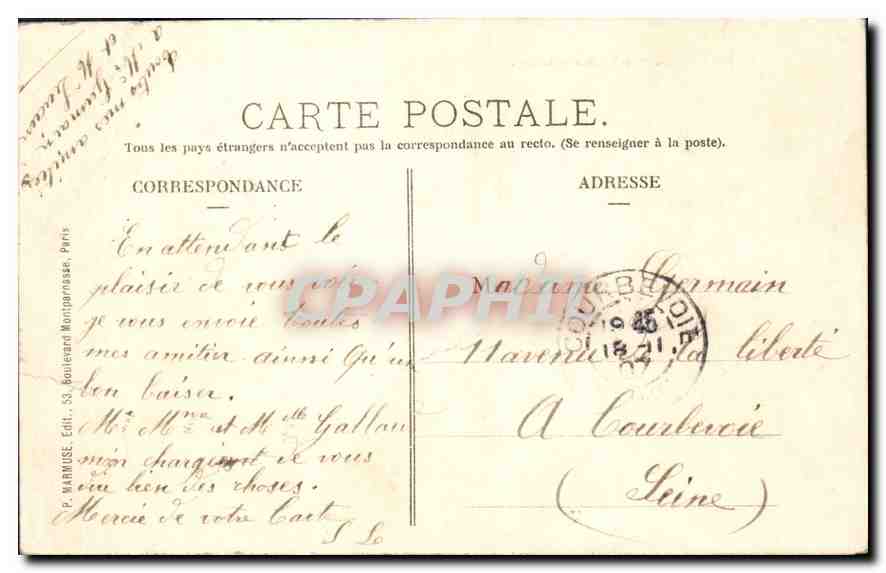 toutes mes amitiés
a Mr Germain
et Mr Lucien
CARTE POSTALE.
Tous les pays étrangers n'acceptent pas la correspondance au recto. (Se renseigner à la poste).
CORRESPONDANCE
ADRESSE
En attendant le
plaisir de vous voir
je vous envoie toutes
mes amitier ainsi Qu'un
bon baiser.
Mr Mme et Mlle Gallau
m'on charge de vous
dire bien des choses.
Mercie de votre Carte
S Le
Madame Germain
11 avenue de la liberté
A Courbevoie
(Seine)
COURBEVOIE
18
P. MARMUSE, Edit., 53, Boulevard Montparnasse, Paris
CPAPHIL